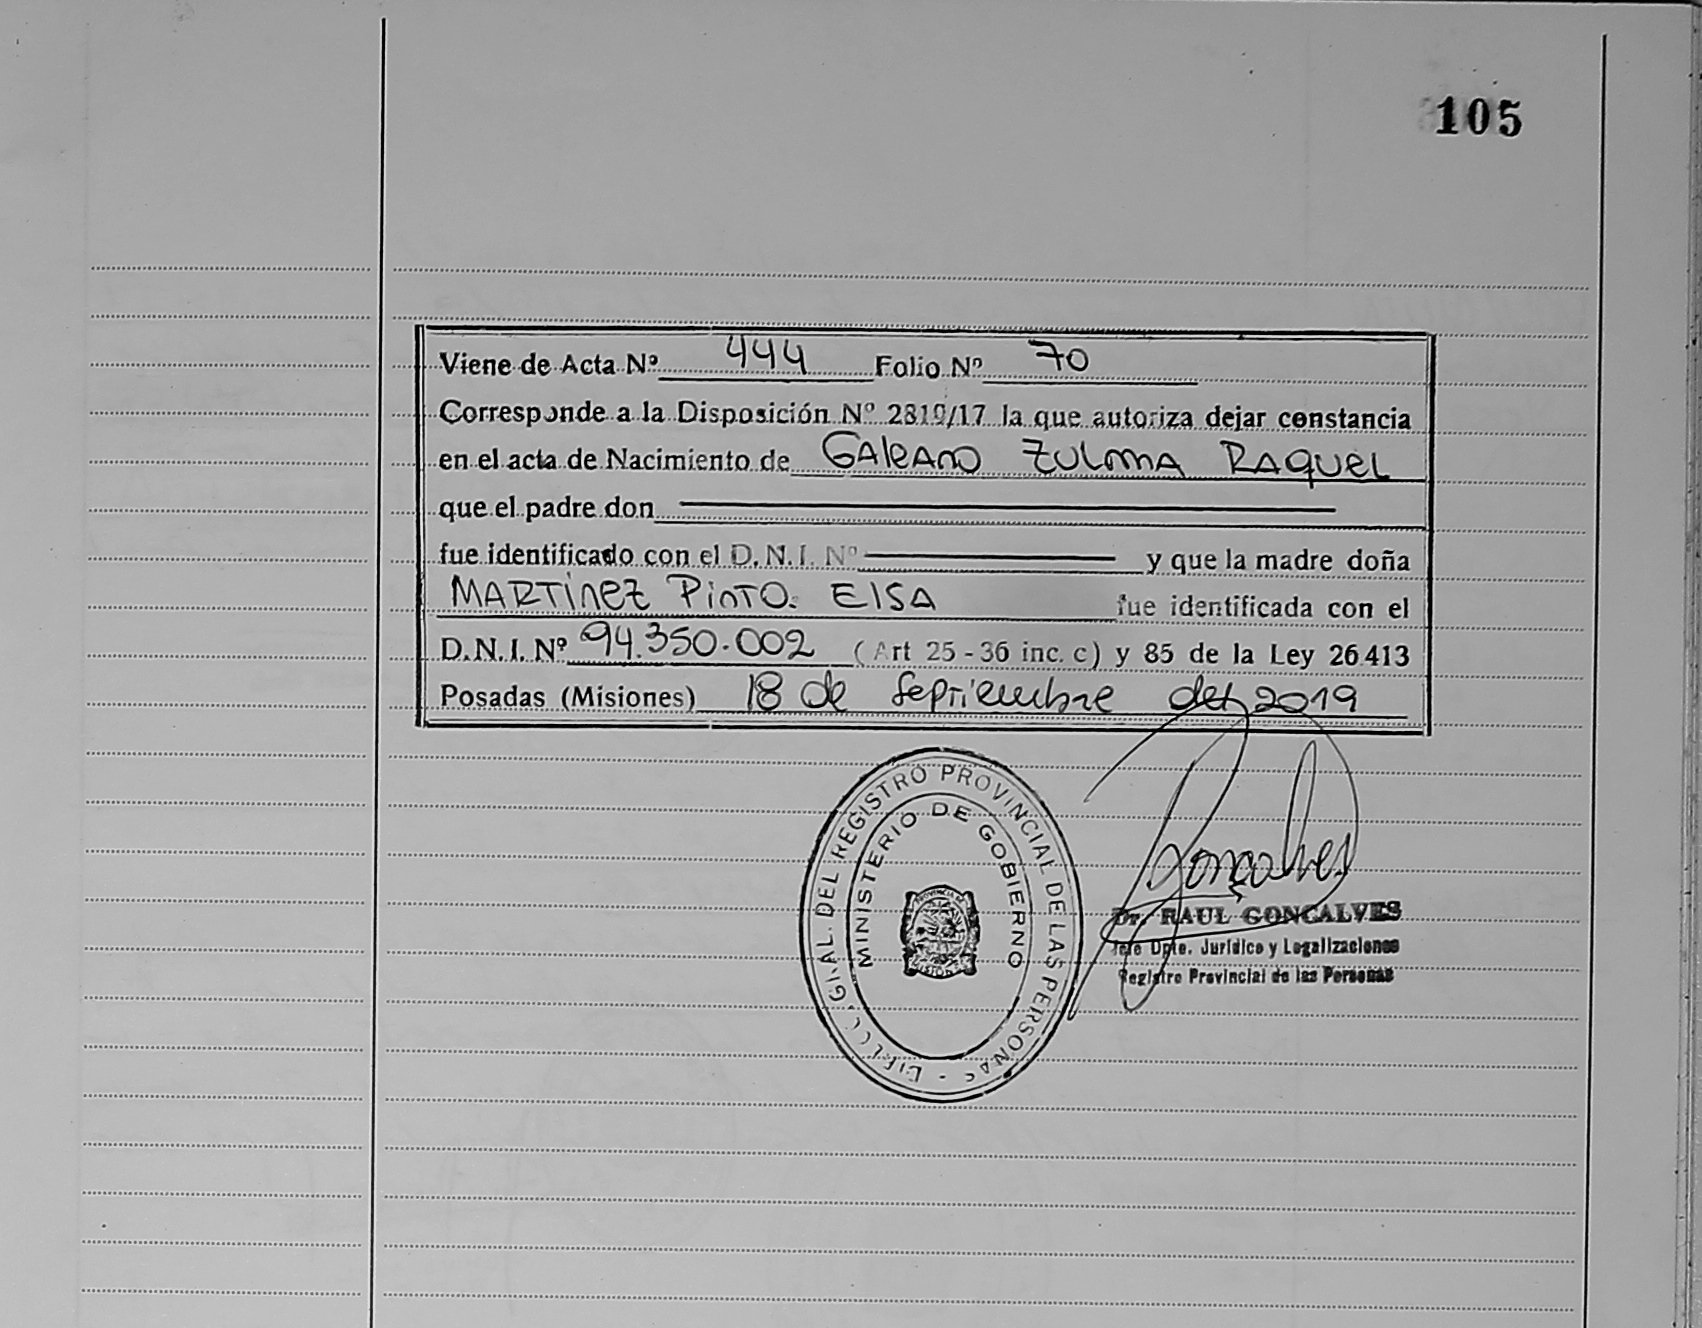 105
Viene de Acta Nº 444 Folio Nº 70
Corresponde a la Disposición Nº 2819/17 la que autoriza dejar constancia
en el acta de Nacimiento de GALEANO ZULMA RAQUEL
que el padre don
fue identificado con el D.N.I. Nº y que la madre doña
MARTINEZ PINTO. ELSA fue identificada con el
D.N.I. Nº 94.350.002 (Art 25 - 36 inc. c) y 85 de la Ley 26.413
Posadas (Misiones) 18 de septiembre del 2019
GRAL. DEL REGISTRO PROVINCIAL DE LAS PERSONAS -
MINISTERIO DE GOBIERNO
Gonçalves
Dr. RAUL GONCALVES
Jefe Dpto. Jurídico y Legalizaciones
Registro Provincial de las Personas